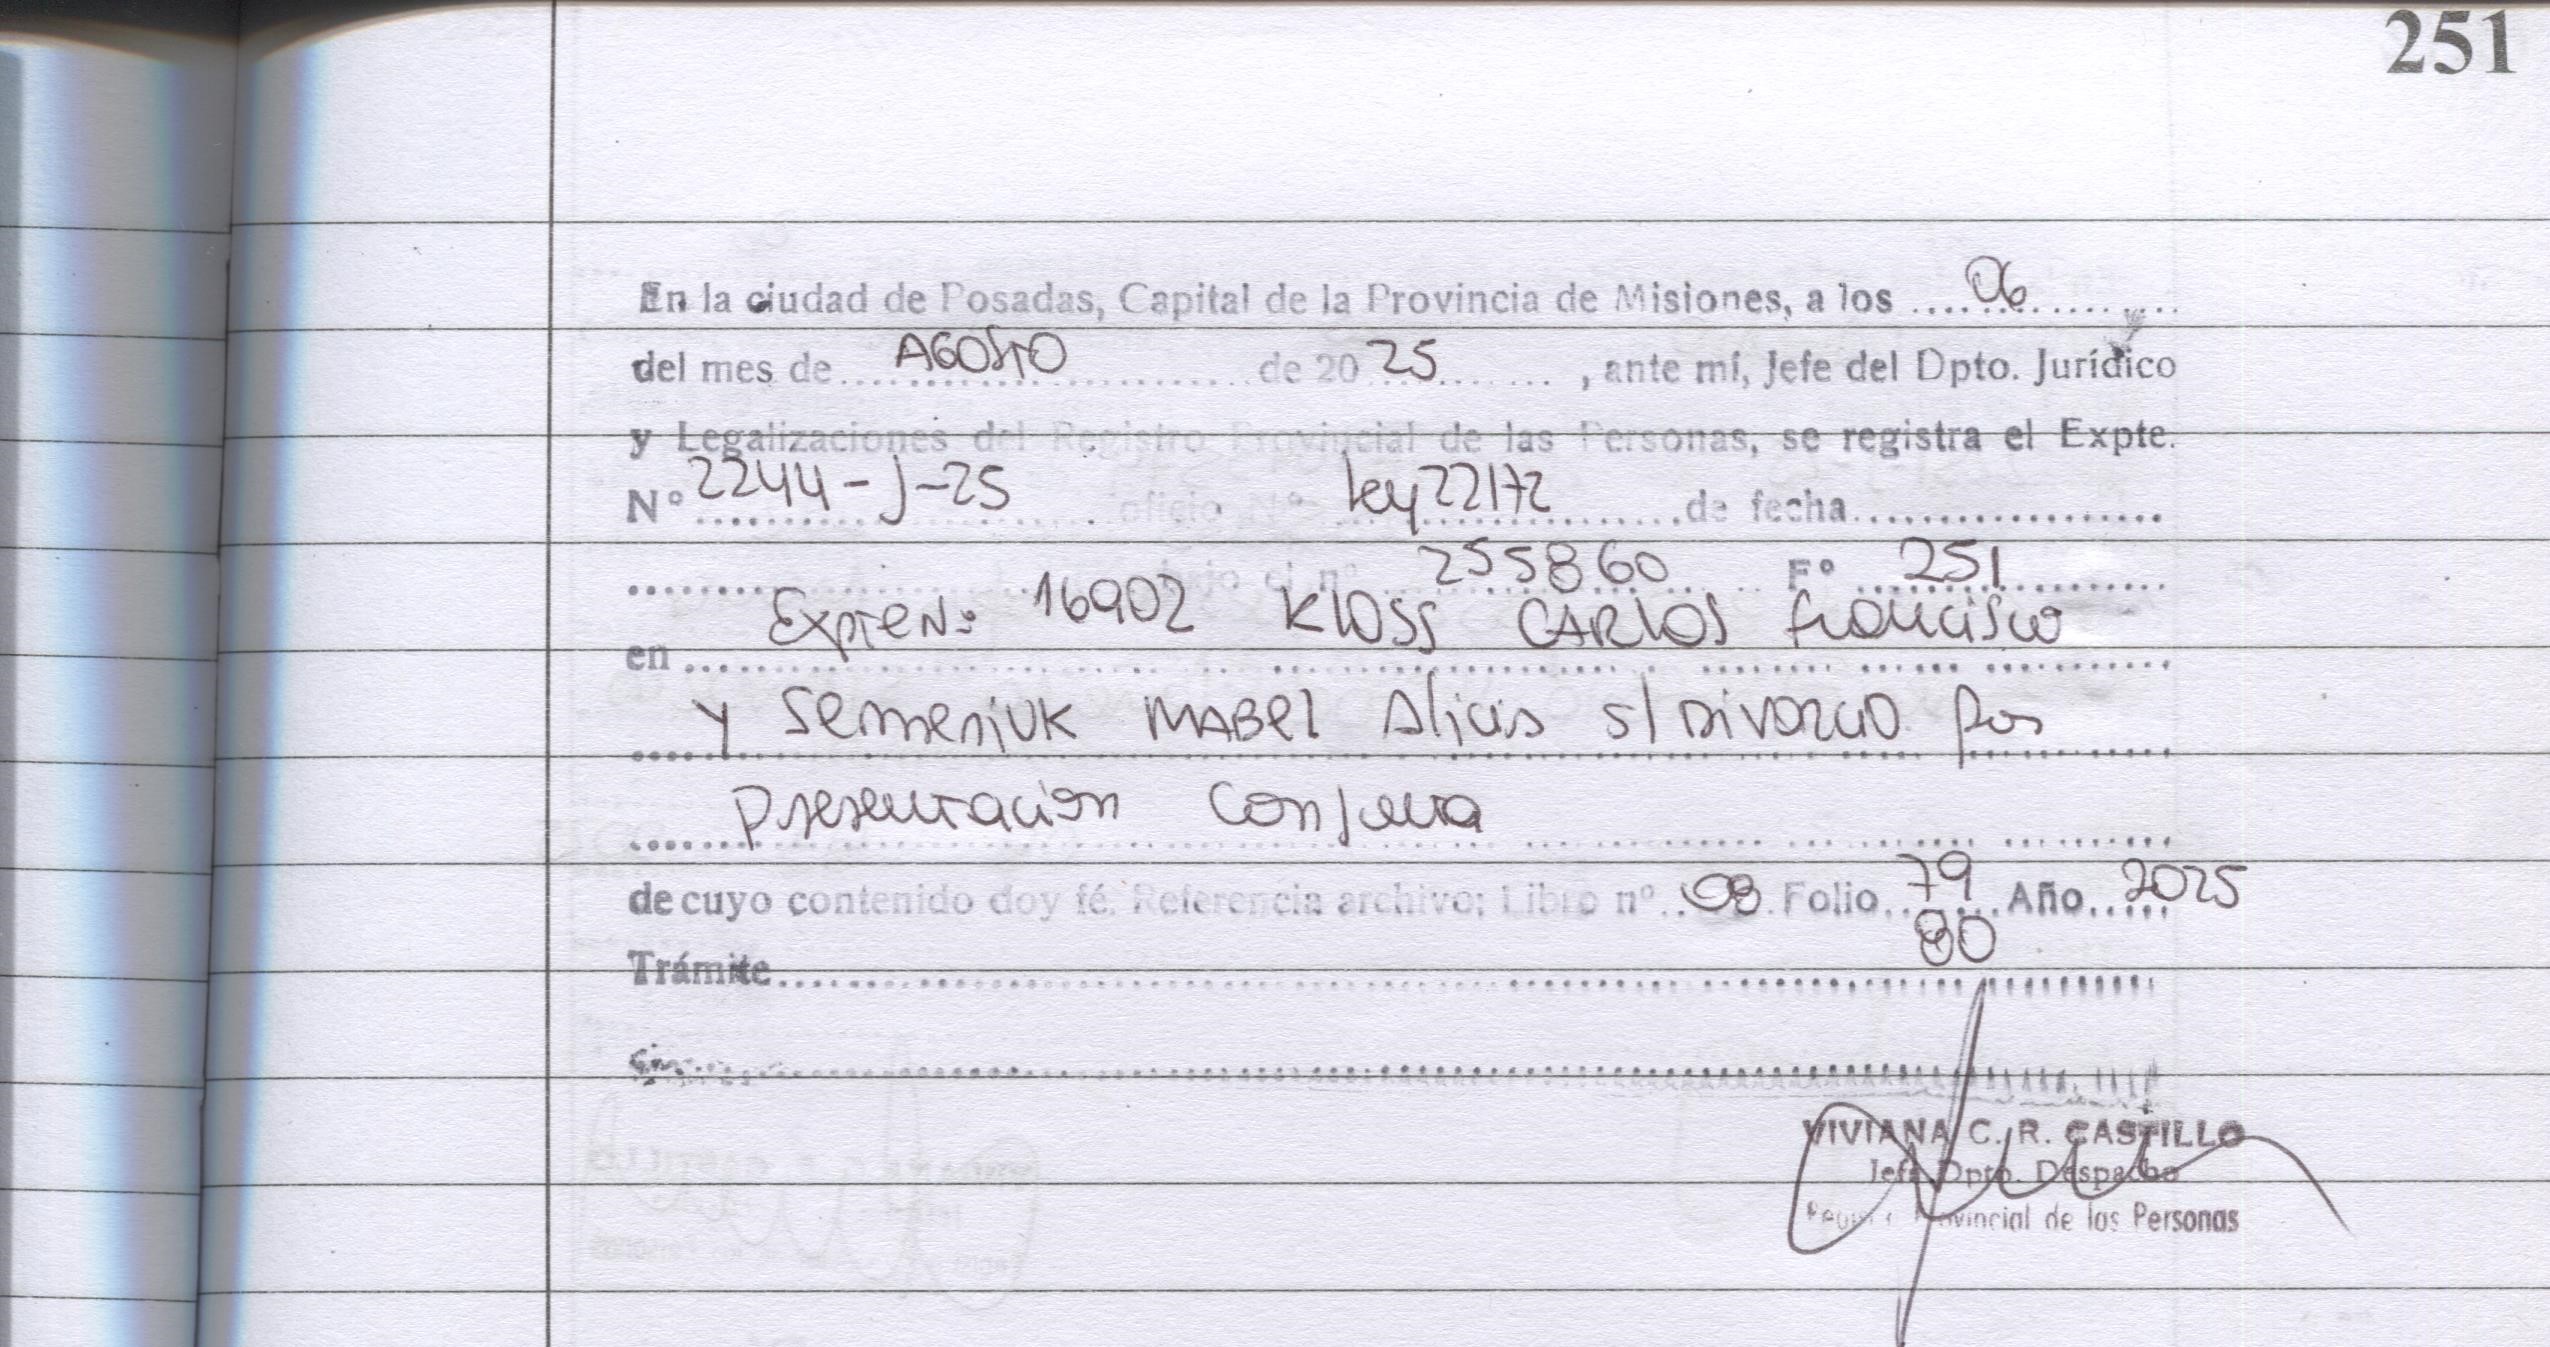 251
En la ciudad de Posadas, Capital de la Provincia de Misiones, a los ....06..........
del mes de ....AGOSTO.... de 20 25 ........ , ante mí, Jefe del Dpto. Jurídico
y Legalizaciones del Registro Provincial de las Personas, se registra el Expte.
N° 2244-J-25 oficio N° ley 22172 de fecha....................
.......... bajo el n° 255860 F° 251
en Expte N: 16902 Kloss CARLOS francisco
y Semeniuk MABEL Alicia s/ Divorcio por
presentacion Conjunta
de cuyo contenido doy fé. Referencia archivo; Libro n° 08 Folio 79 Año 2025
80
Trámite
VIVIANA C. R. CASTILLO
Jefe Dpto. Despacho
Provincial de las Personas